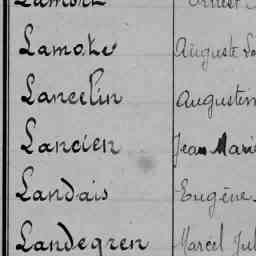 Lamotte Auguste
Lancelin Augustin
Lancien Jean Marie
Landais Eugène
Landegren Marcel